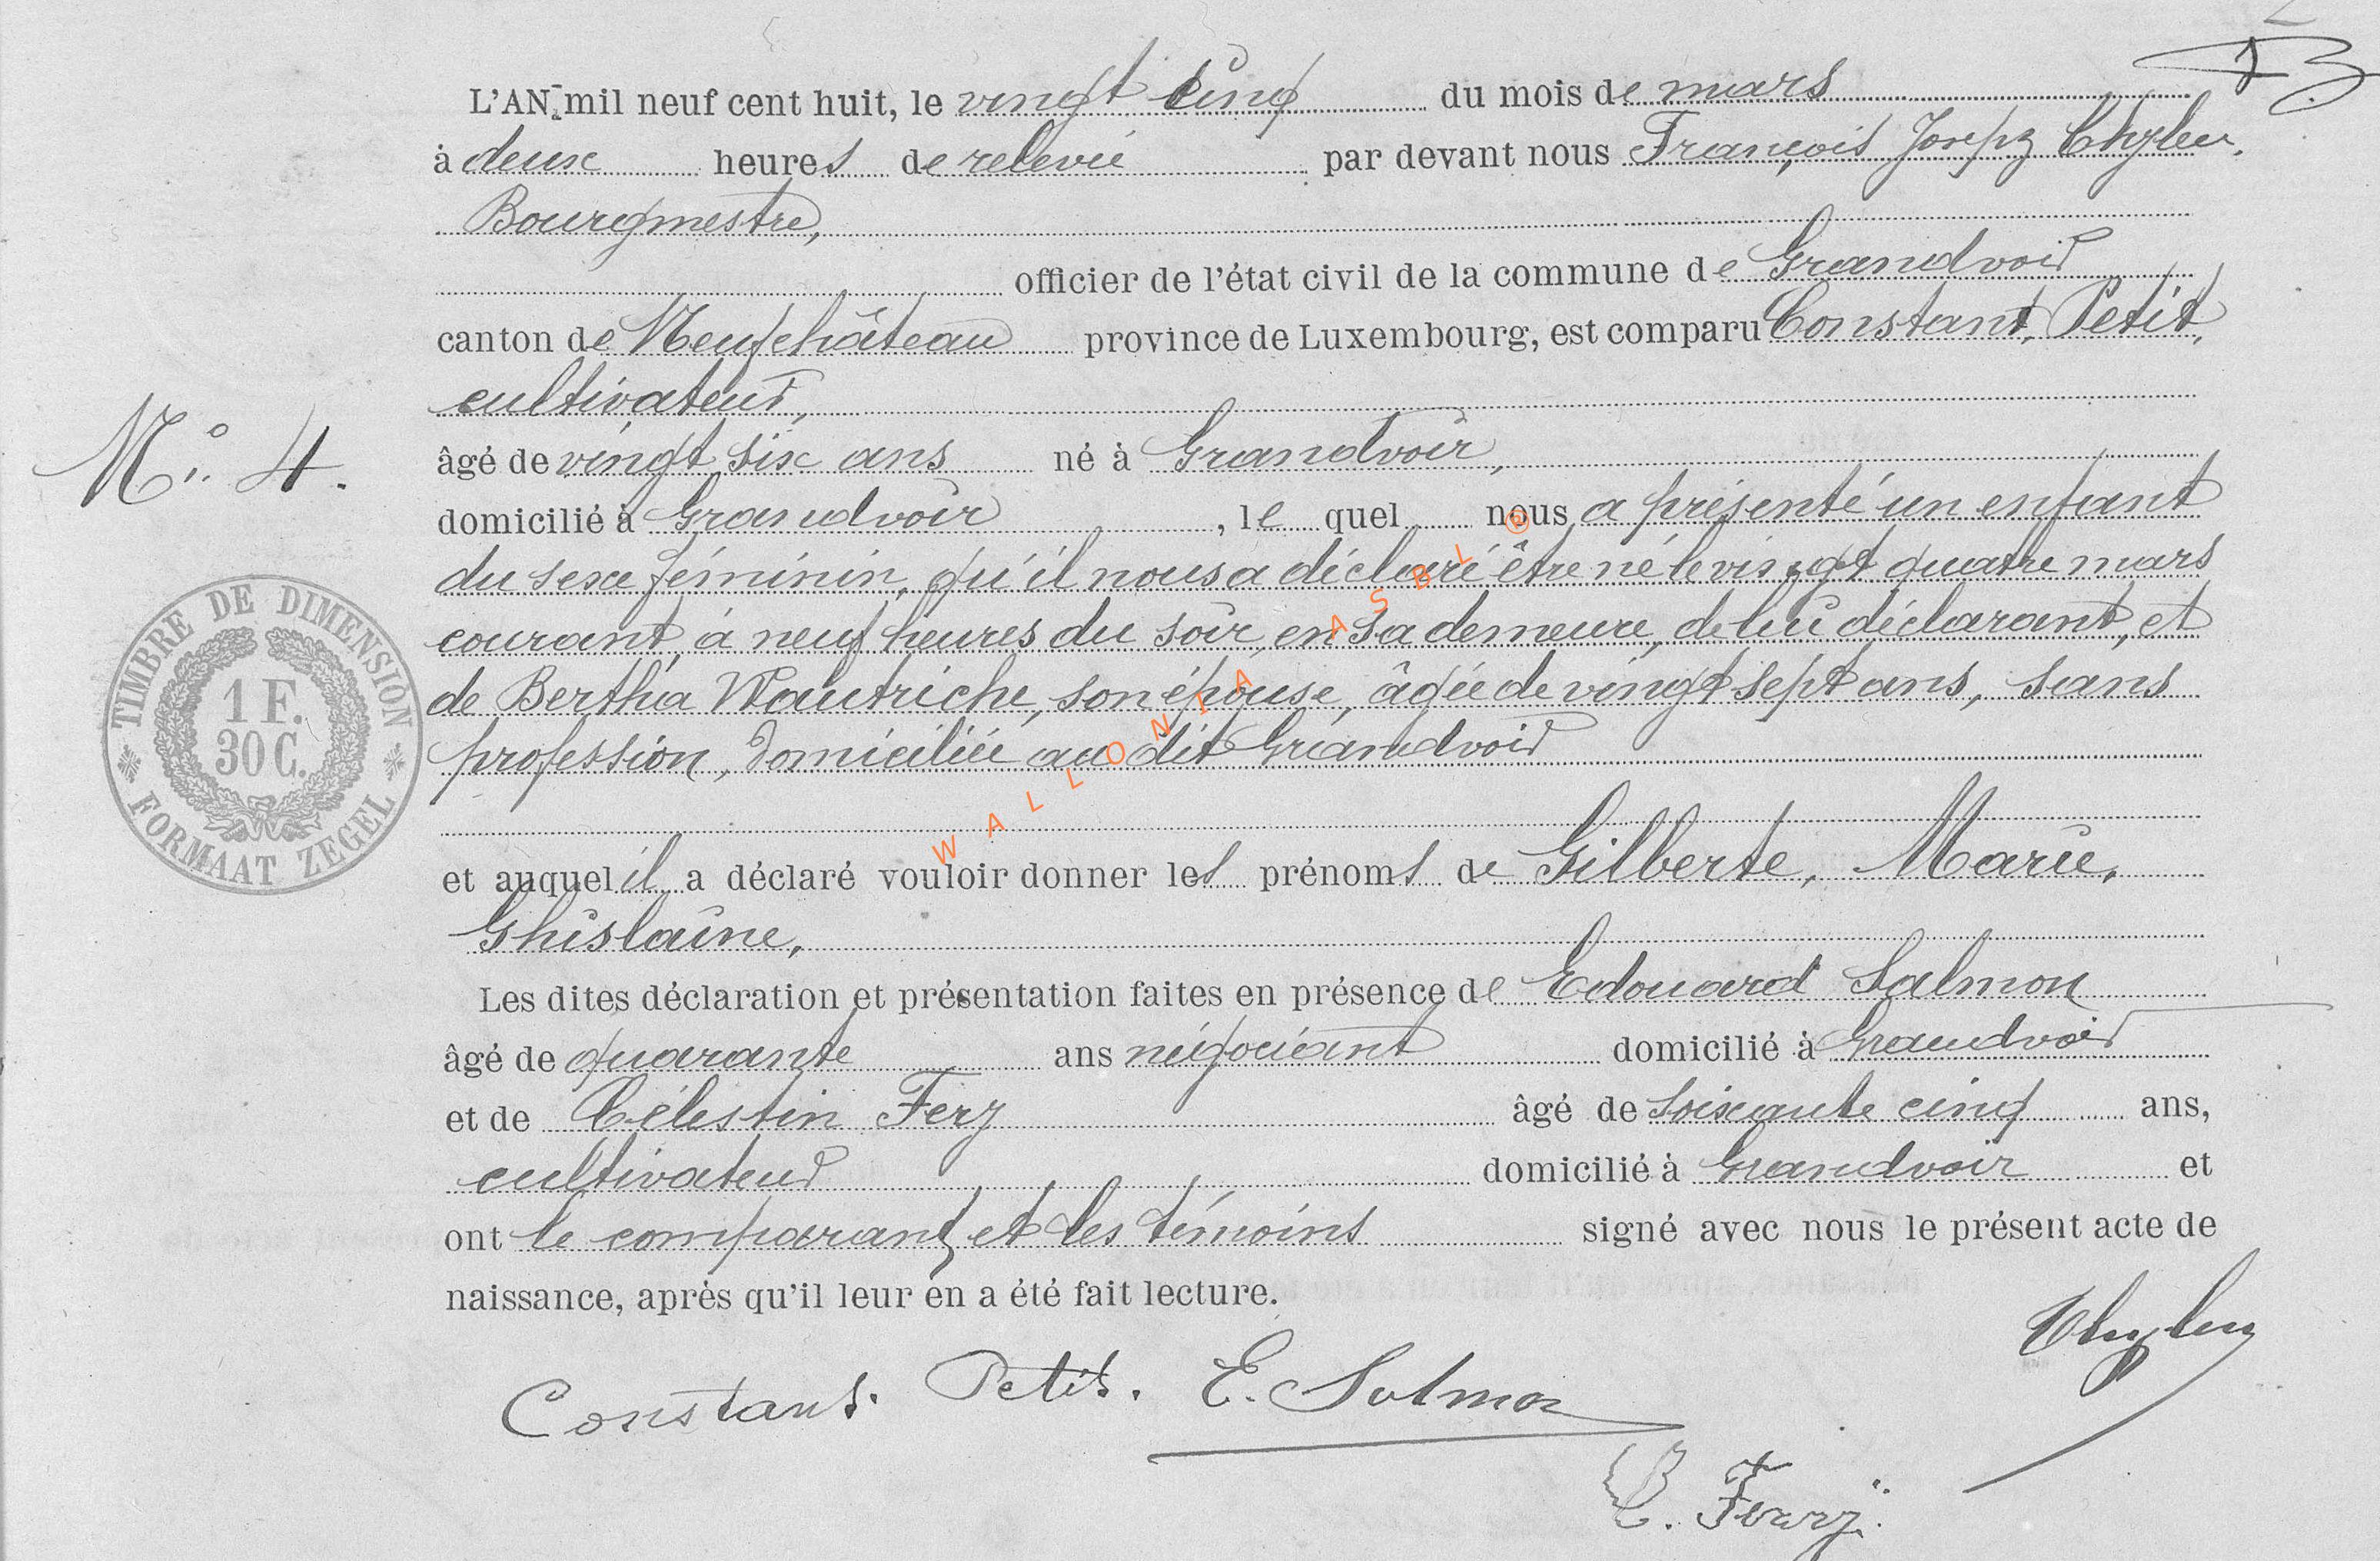 L'AN mil neuf cent huit, le vingt cinq du mois de mars
à deux heures de relevée par devant nous François Joseph
Bourgmestre,
officier de l'état civil de la commune de Grandvoir
canton de Neufchâteau province de Luxembourg, est comparu Constant, Petit,
cultivateur,
N° 4.
âgé de vingt six ans né à Grandvoir,
domicilié à Grandvoir, le quel nous a présenté un enfant
du sexe féminin, qu'il nous a déclaré être né le vingt quatre mars
courant, à neuf heures du soir, en sa demeure, de lui déclarant, et
de Bertha Wautriche, son épouse, âgée de vingt sept ans, sans
profession, domiciliée au dit Grandvoir
TIMBRE DE DIMENSION
1 F.
30 C.
FORMAAT ZEGEL
WALLONIA ASBL ©
et auquel il a déclaré vouloir donner les prénoms de Gilberte, Marie,
Ghislaine,
Les dites déclaration et présentation faites en présence de Edouard Salmon
âgé de quarante ans négociant domicilié à Grandvoir
et de Célestin Fery âgé de soixante cinq ans,
cultivateur domicilié à Grandvoir et
ont le comparant et les témoins signé avec nous le présent acte de
naissance, après qu'il leur en a été fait lecture.
Constant. Petit. E. Salmon
C. Fery